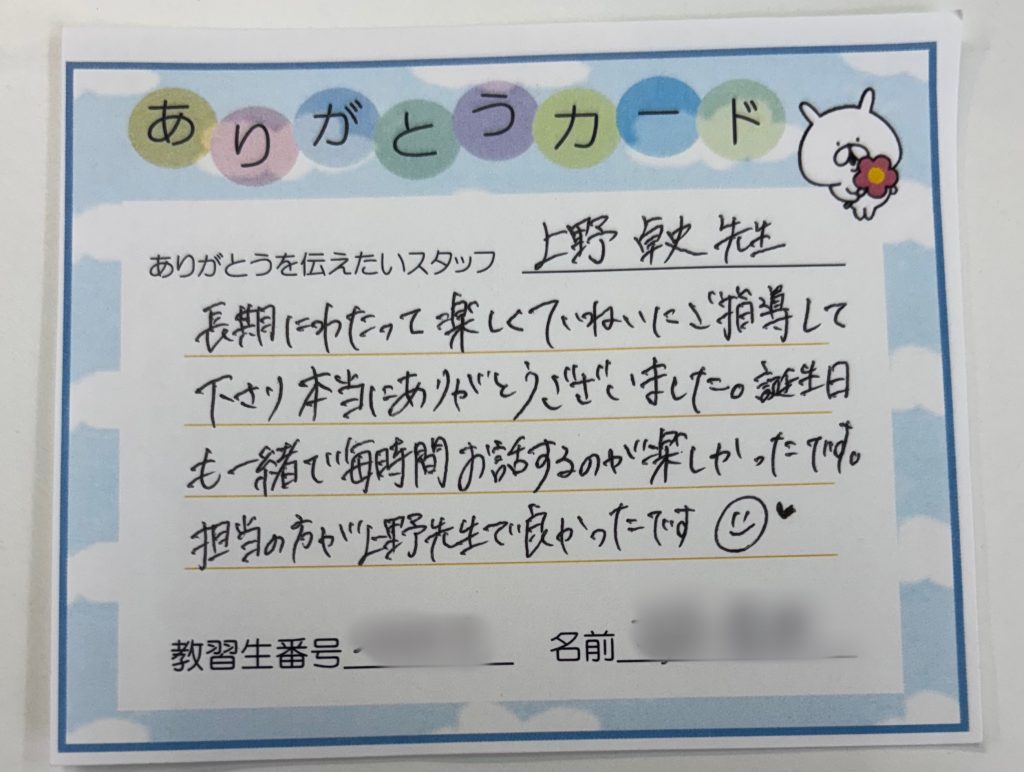 ありがとうカード
ありがとうを伝えたいスタッフ 上野 卓史 先生
長期にわたって楽しくていねいにご指導して
下さり本当にありがとうございました。誕生日
も一緒で毎時間お話するのが楽しかったです。
担当の方が上野先生で良かったです
教習生番号 名前